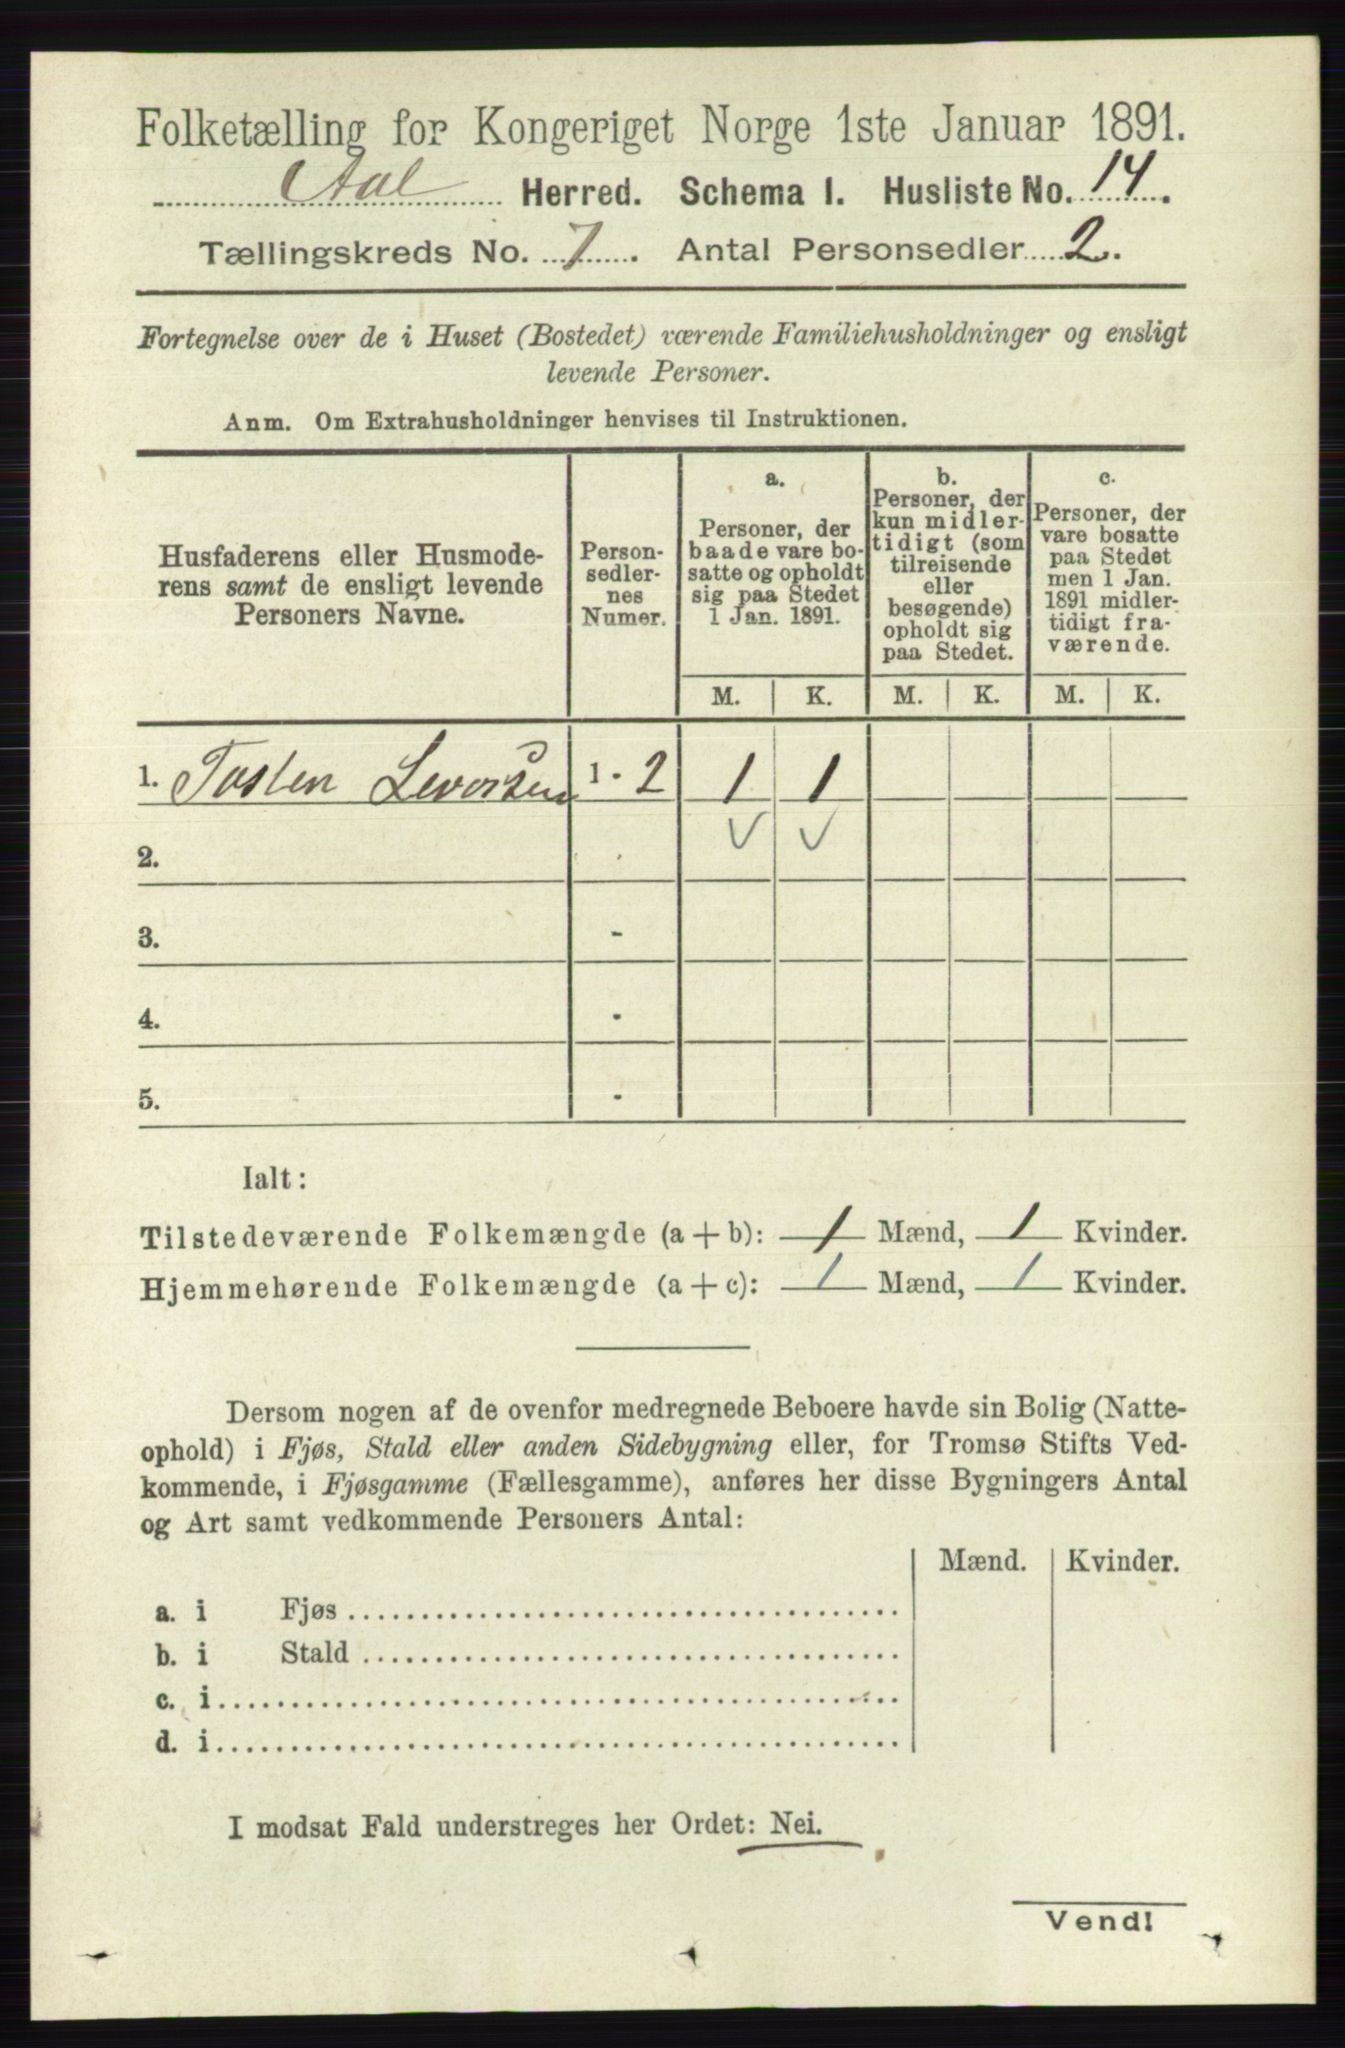 Folketælling for Kongeriget Norge 1ste Januar 1891.
Aal Herred. Schema 1. Husliste No. 14.
Tællingskreds No. 7. Antal Personsedler 2.
Fortegnelse over de i Huset (Bostedet) værende Familiehusholdninger og ensligt
levende Personer.
Anm. Om Extrahusholdninger henvises til Instruktionen.
Husfaderens eller Husmode-
rens samt de ensligt levende
Personers Navne.
Person-
sedler-
nes
Numer.
a.
Personer, der
baade vare bo-
satte og opholdt
sig paa Stedet
1 Jan. 1891.
b.
Personer, der
kun midler-
tidigt (som
tilreisende
eller
besøgende)
opholdt sig
paa Stedet.
c.
Personer, der
vare bosatte
paa Stedet
men 1 Jan.
1891 midler-
tidigt fra-
værende.
M. K. M. K. M. K.
1. Tosten Levorsen 1 - 2 1 1
2.
3. -
4. -
5. -
Ialt:
Tilstedeværende Folkemængde (a + b): 1 Mænd, 1 Kvinder.
Hjemmehørende Folkemængde (a + c): 1 Mænd, 1 Kvinder.
Dersom nogen af de ovenfor medregnede Beboere havde sin Bolig (Natte-
ophold) i Fjøs, Stald eller anden Sidebygning eller, for Tromsø Stifts Ved-
kommende, i Fjøsgamme (Fællesgamme), anføres her disse Bygningers Antal
og Art samt vedkommende Personers Antal:
Mænd. Kvinder.
a. i Fjøs
b. i Stald
c. i
d. i
I modsat Fald understreges her Ordet: Nei.
Vend!